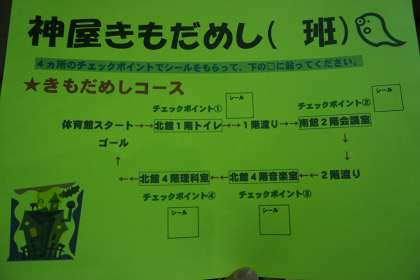 神屋きもだめし(　班)
４ヵ所のチェックポイントでシールをもらって、下の□に貼ってください。
★きもだめしコース
チェックポイント① シール
チェックポイント② シール
体育館スタート→→北館１階トイレ→→１階渡り→→南館２階会議室
ゴール
↑ ↓
←←北館４階理科室←←北館４階音楽室←←２階渡り
チェックポイント④ チェックポイント③
シール シール